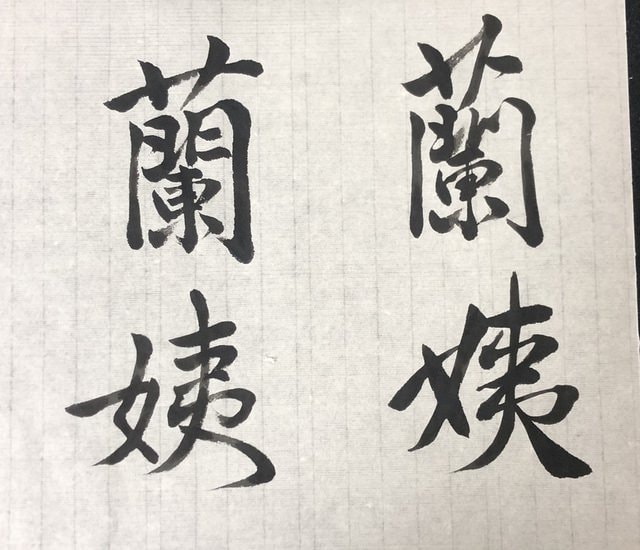 蘭姨
蘭姨